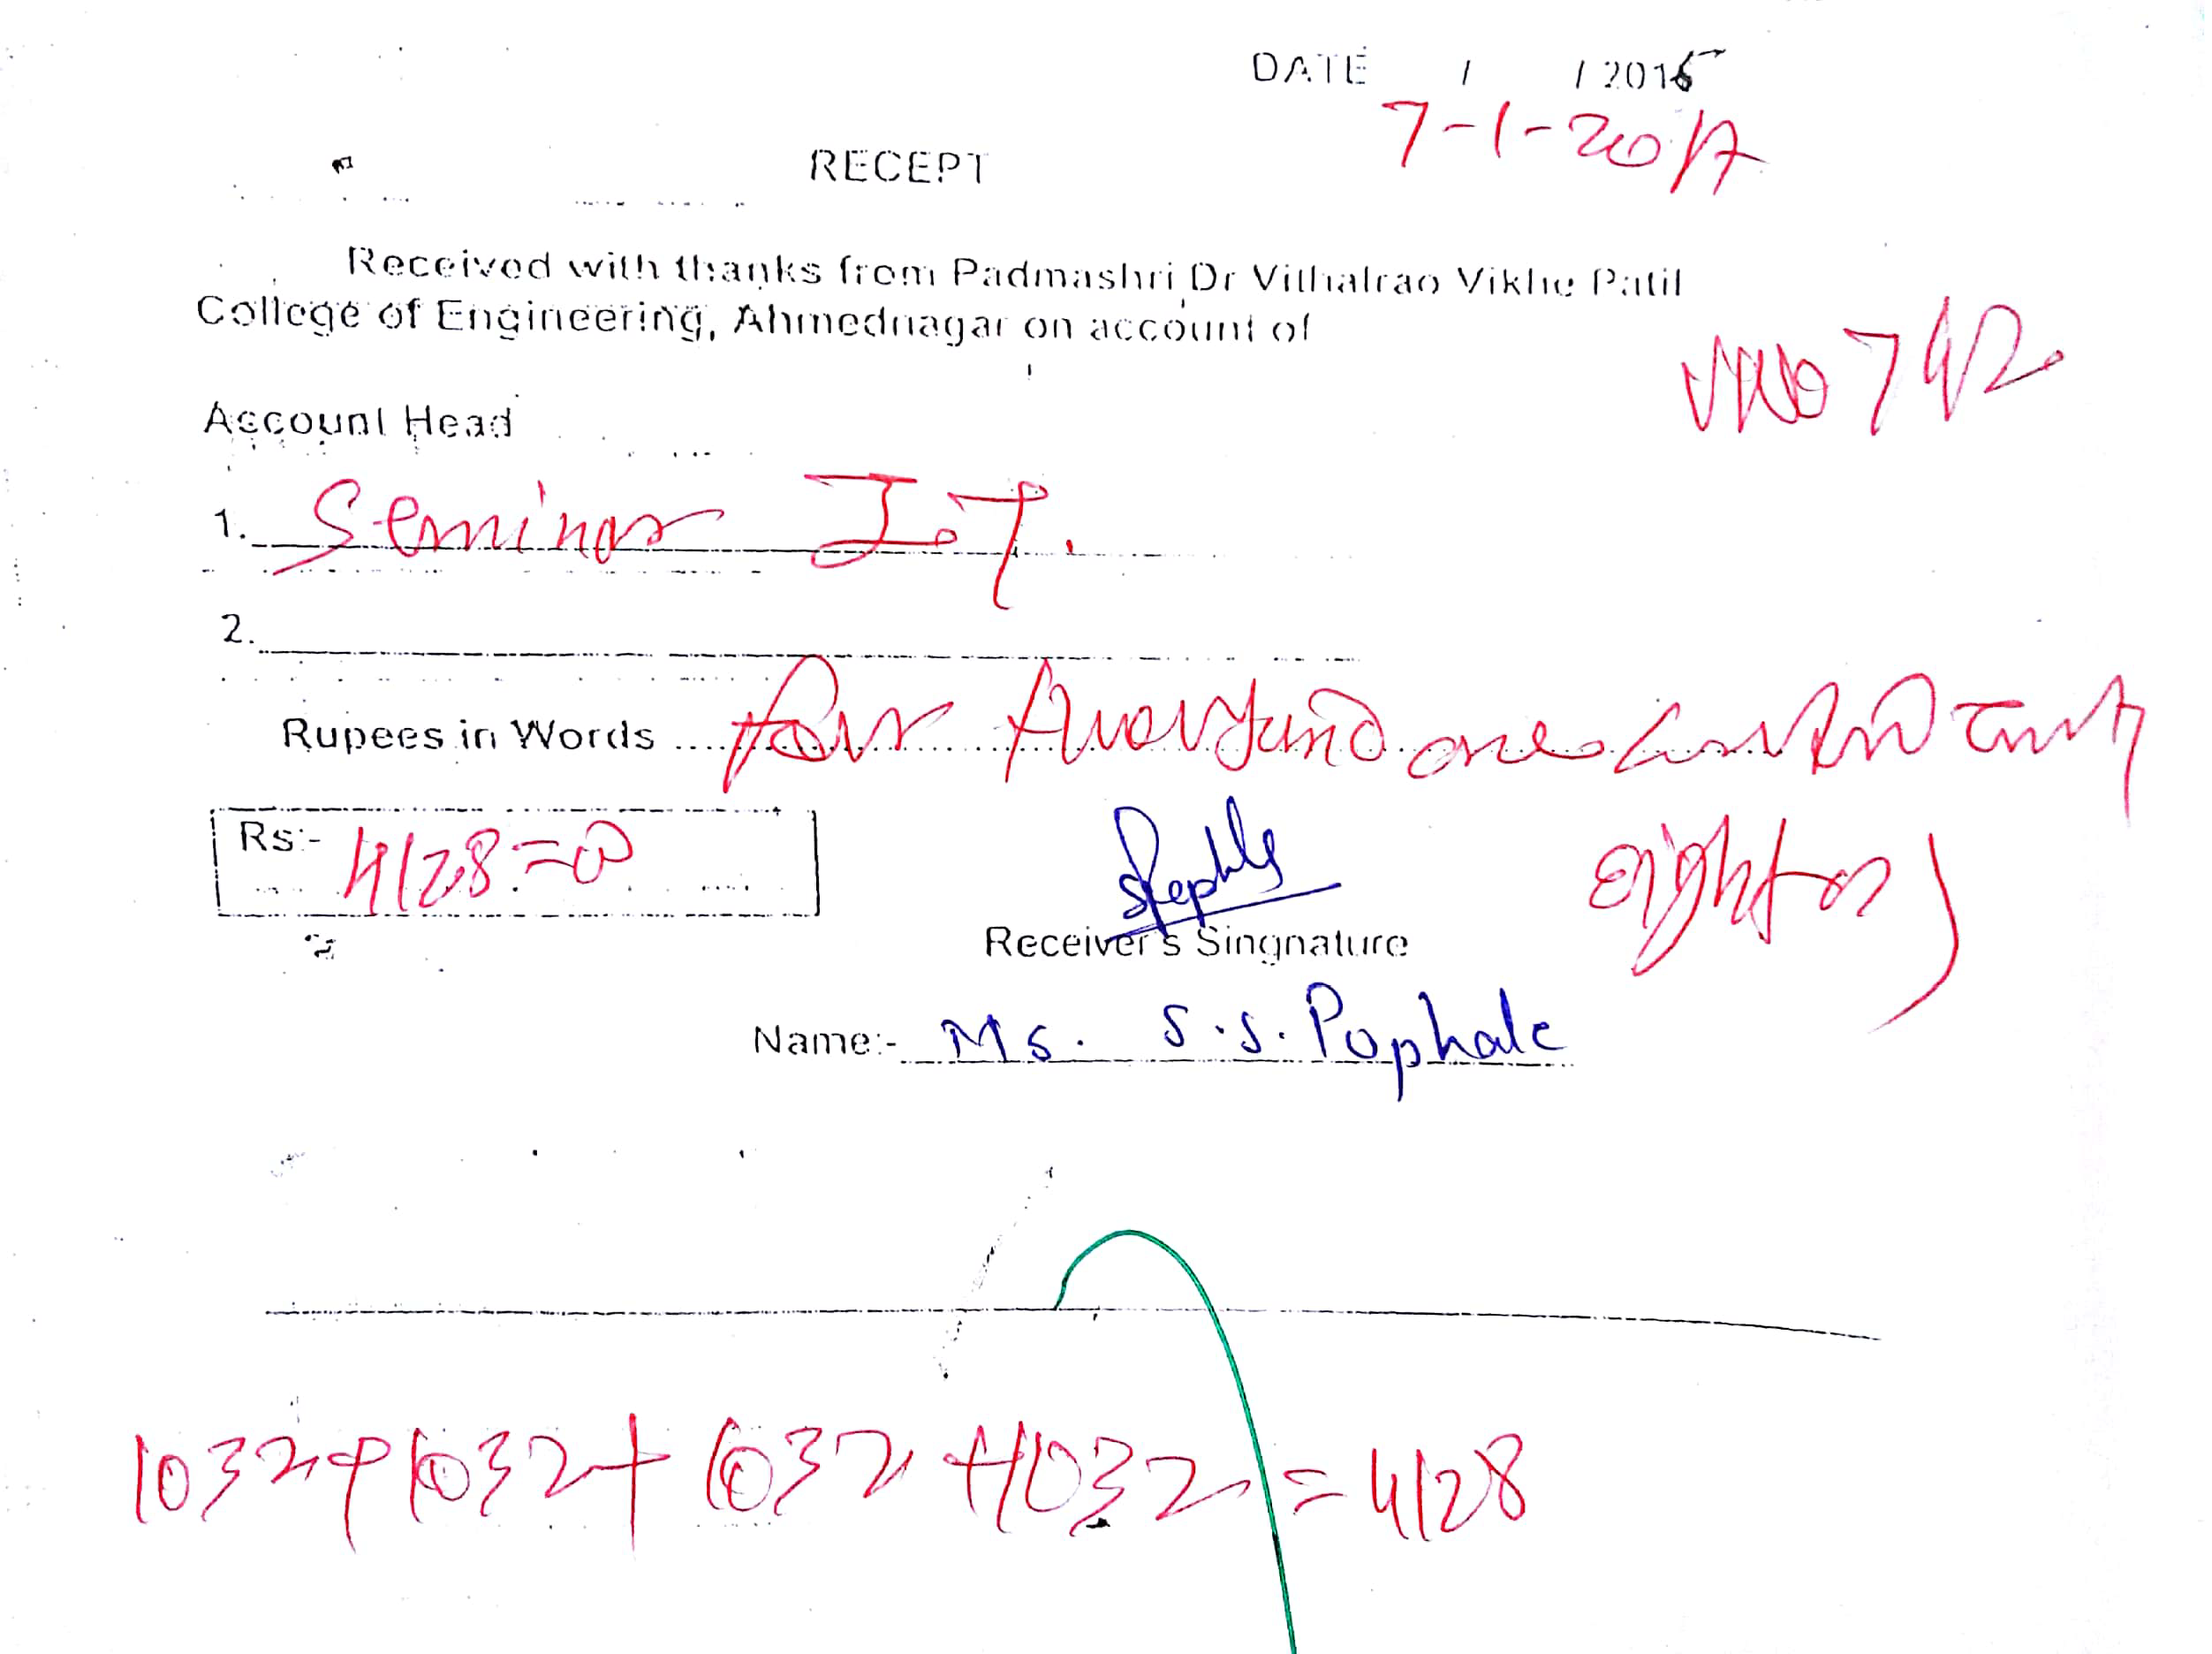 DATE / / 2015
7-1-2017
RECEPT
Received with thanks from Padmashri Dr Vithalrao Vikhe Patil
College of Engineering, Ahmednagar on account of
VNo 742
Account Head
1. Seminar I.T.
2.
Rupees in Words four thousand one hundred twenty
eight only
Rs:- 4128=00
Receiver's Singnature
Name:- Ms. S.S. Pophale
1032+1032+1032+1032=4128